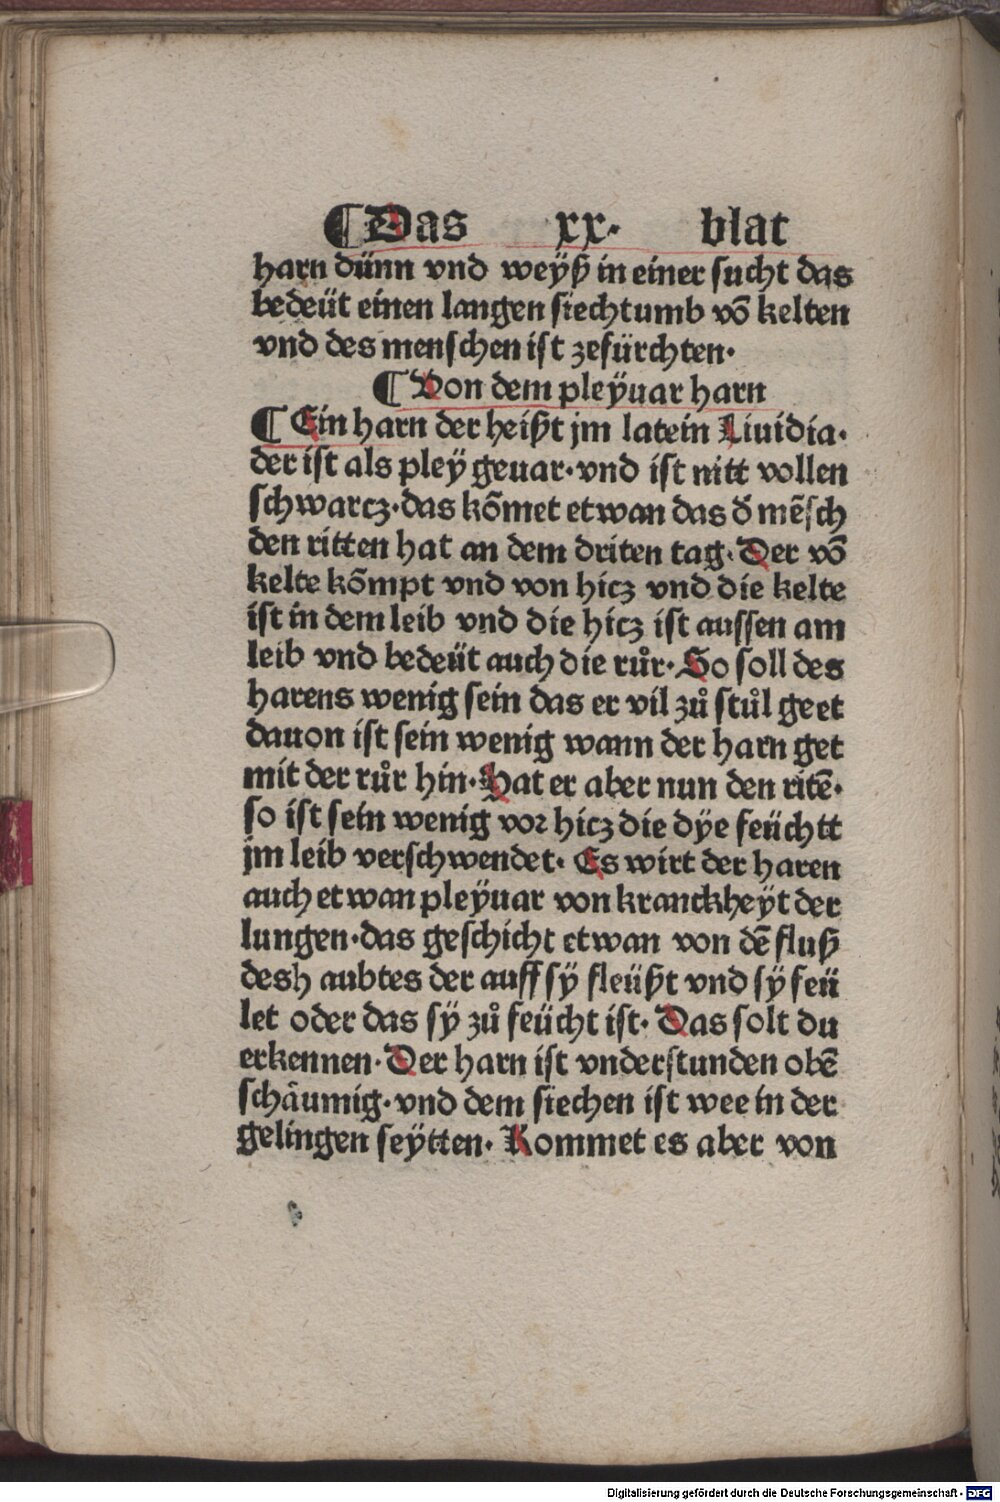 ¶Das xx· blat
harn dünn vnd weÿß in einer sucht das
bedeüt einen langen siechtumb võ kelten
vnd des menschen ist zefürchten·
¶Von dem pleÿuar harn
¶Ein harn der heißt jm latein Liuidia·
der ist als pleÿ geuar·vnd ist nitt vollen
schwarcz·das kõmet etwan das d̄ mẽsch
den ritten hat an dem driten tag·Der võ
kelte kõmpt vnd von hicz vnd die kelte
ist in dem leib vnd die hicz ist aussen am
leib vnd bedeüt auch die růr·So soll des
harens wenig sein das er vil zů stůl geet
dauon ist sein wenig wann der harn get
mit der růr hin·Hat er aber nun den ritẽ·
so ist sein wenig vor hicz die dÿe feüchtt
jm leib verschwendet· Es wirt der haren
auch etwan pleÿuar von kranckheÿt der
lungen·das geschicht etwan von dẽ fluß
desh aubtes der auff sÿ fleüßt vnd sÿ feü
let oder das sÿ zů feücht ist· Das solt du
erkennen·Der harn ist vnderstunden obẽ
schâumig·vnd dem siechen ist wee in der
gelingen seÿtten· Kommet es aber von
Digitalisierung gefördert durch die Deutsche Forschungsgemeinschaft - DFG